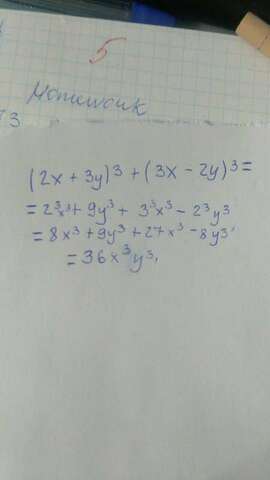 5
Homework
73
(2x + 3y)³ + (3x - 2y)³ =
= 2³x³ + 9y³ + 3³x³ - 2³y³
= 8x³ + 9y³ + 27x³ - 8y³
= 36x³y³